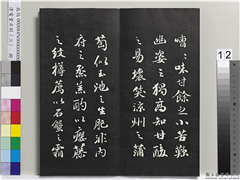 嘈々味甘餘之小苦歎
幽姿之獨高知甘酸
之易壞笑涼州之蒲
萄似玉池之生肥非內
府之蒸羔酌以癭藤
之紋樽薦以石蟹之霜
12